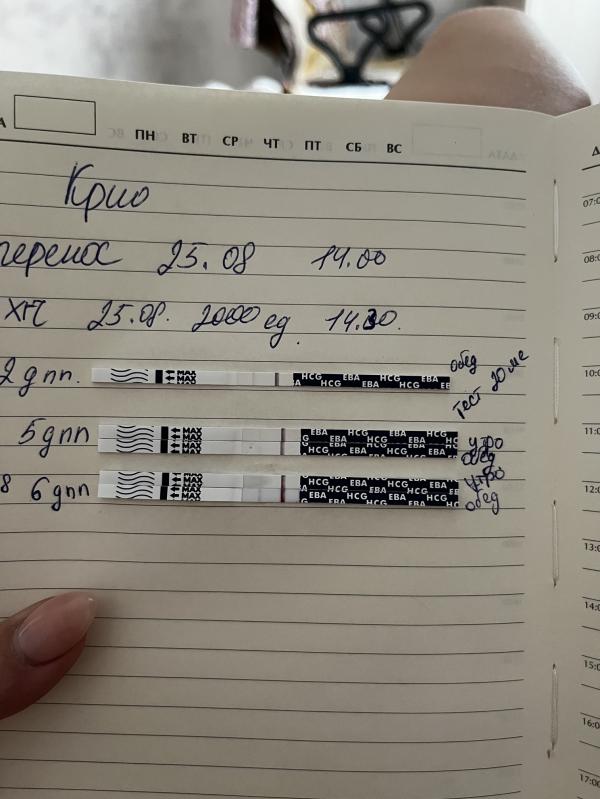 ПН ВТ СР ЧТ ПТ СБ ВС
Крио
перенос 25.08 14.00
ХГЧ 25.08. 2000 ед. 14.30.
2 дпп. MAX MAX HCG EBA HCG EBA HCG EBA HCG EB обед
Тест 20 ме
5 дпп MAX MAX HCG EBA HCG EBA HCG EBA утро
обед
6 дпп MAX MAX HCG EBA HCG EBA HCG EBA HCG утро
обед
07:0
08:0
09:0
10:0
11:0
12:0
13:0
14:0
15:0
16:0
17:00